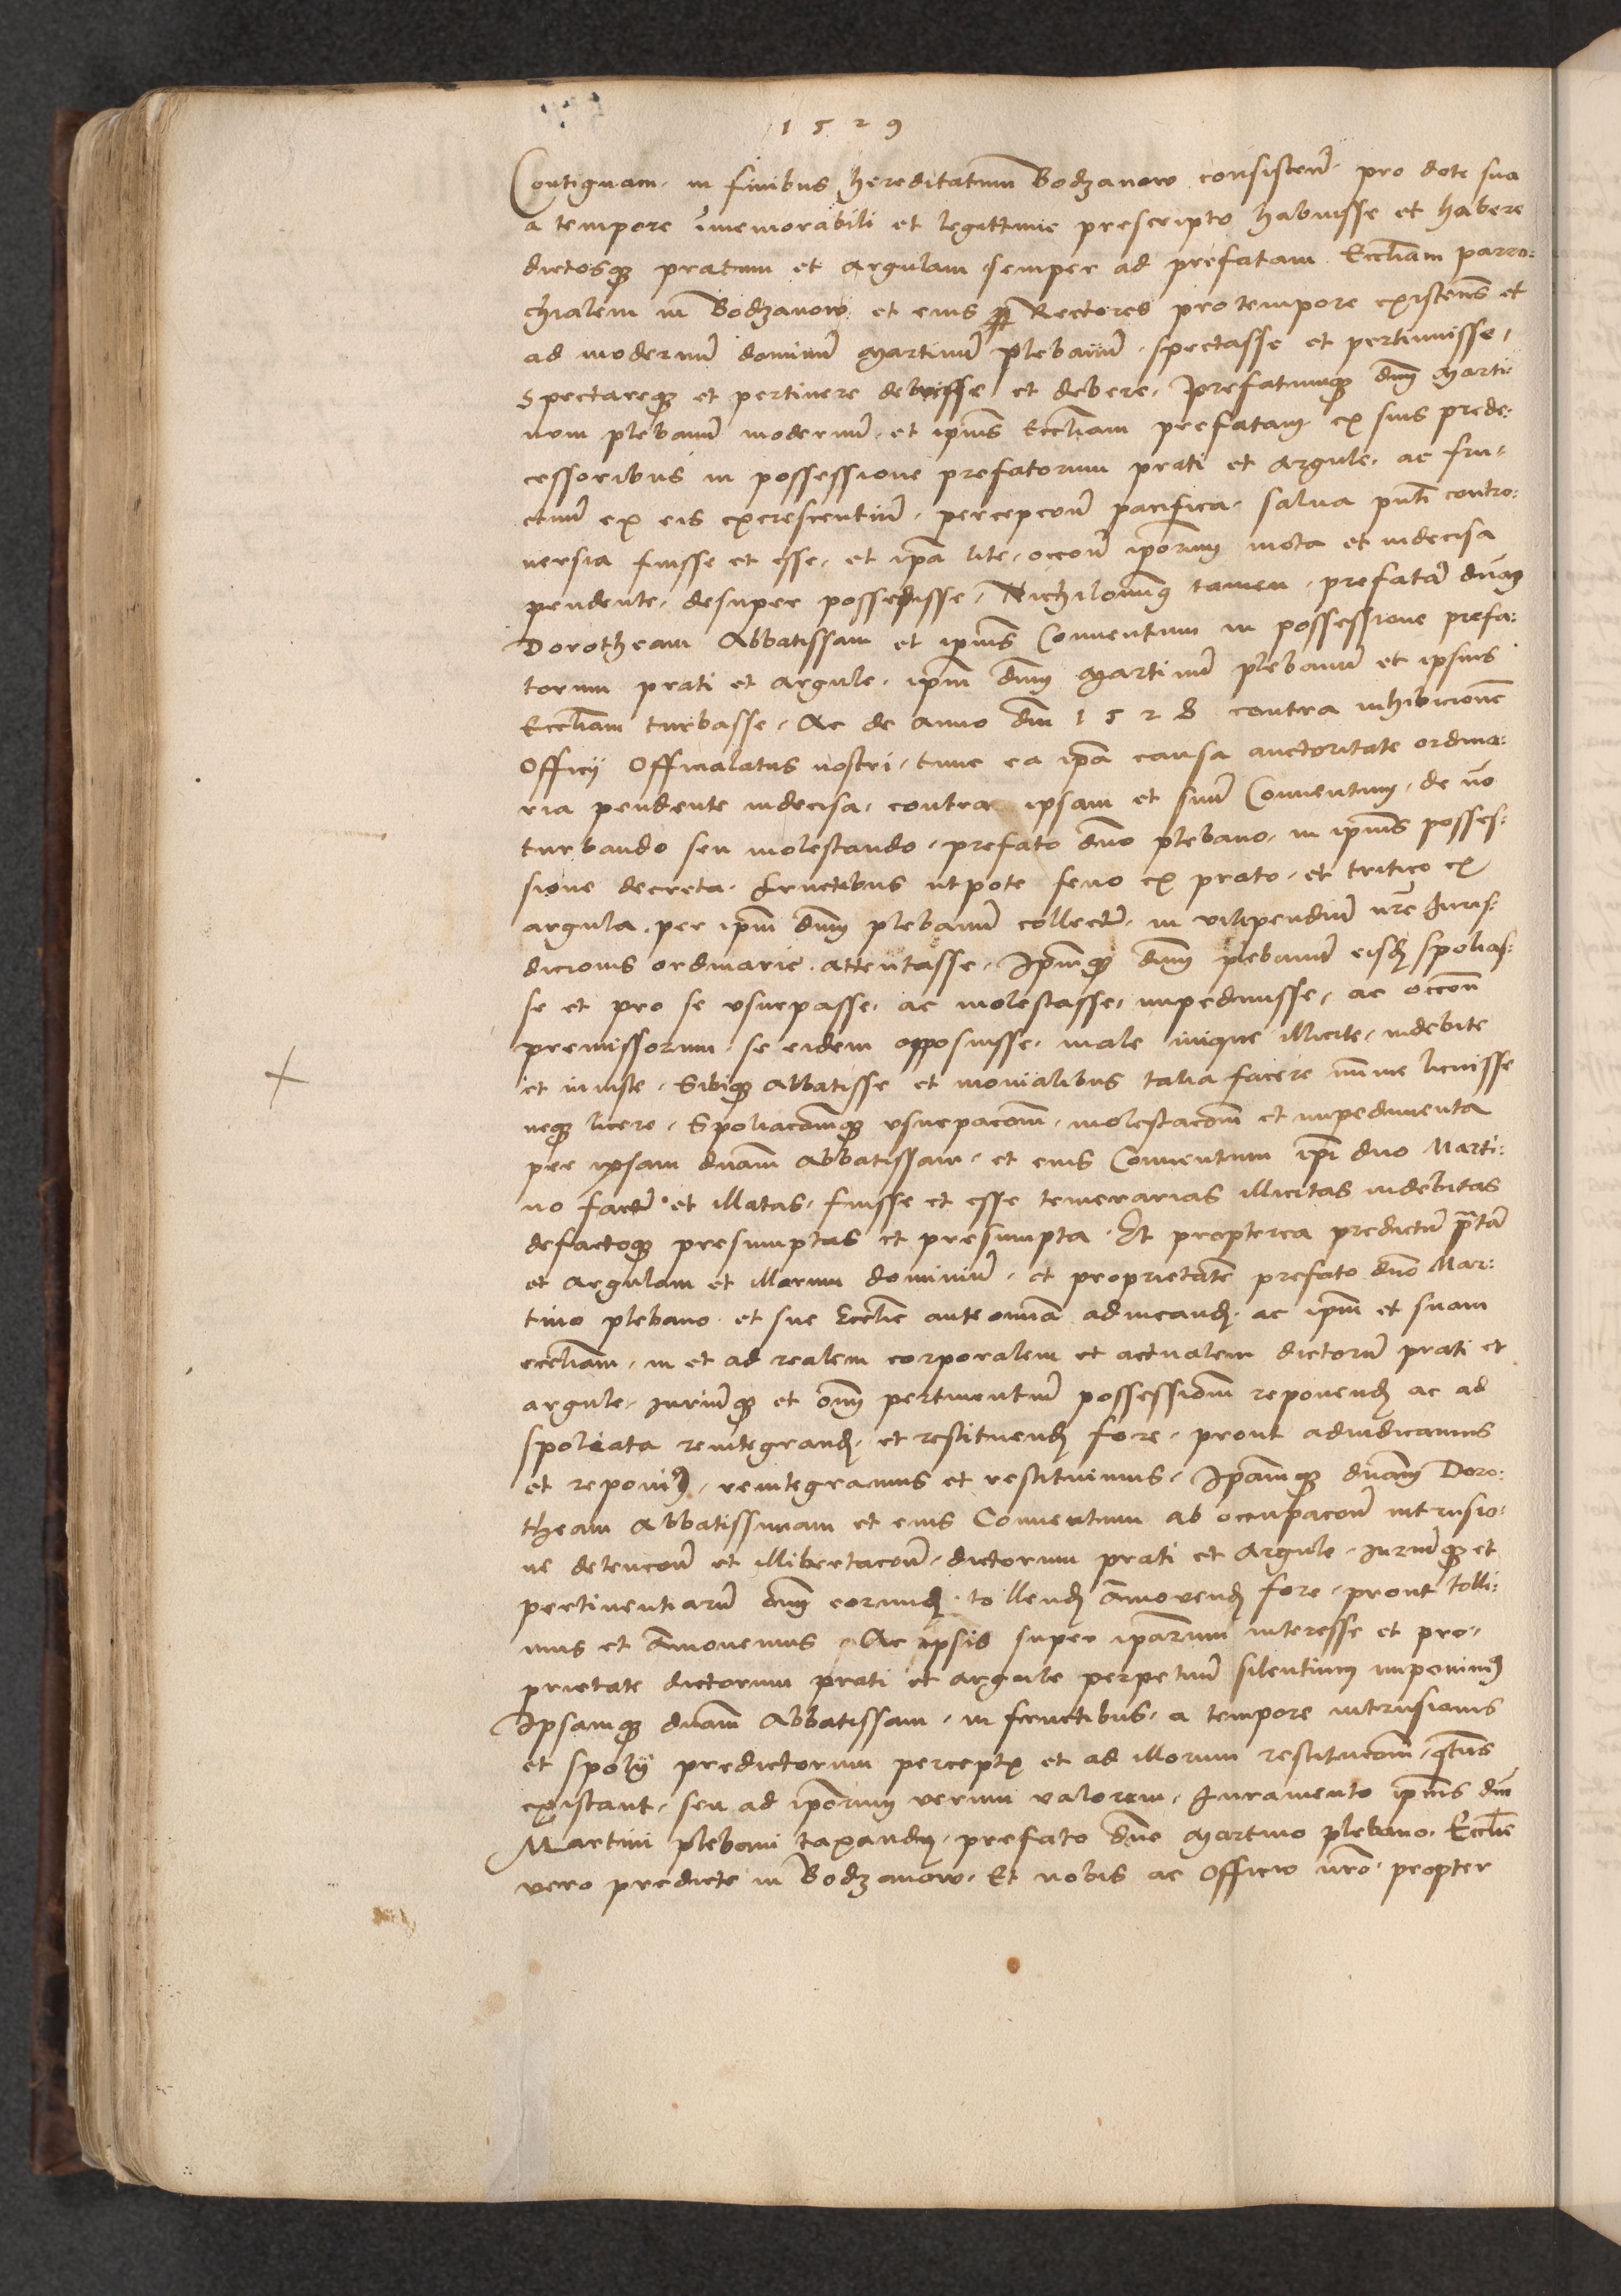 1529
Contiguam in finibus hereditatum Bodzanow consisteñ pro dote sua
a tempore im̄emorabili et legittime prescripto habuisse et habere
dictosq₃ pratum et argulam semper ad prefatam Eccl̄iam parro:
chialem in Bodzanow et eius Rectores pro tempore existeñs et
ad modernū dominū Martinū plebanū spectasse et pertinuisse,
Spectareq₃ et pertinere debuisse et debere, Prefatumq₃ dn̄m Marti
num plebanū modernū et ip̄ius Eccl̄iam prefatam ex suis prede:
cessoribus in possessione prefatorum prati et argule, ac fru-
ctuū ex eis excrescentiū, percepcōn̄ pacifica, salua pn̄ti contro:
uersia fuisse et esse, et ip̄a lite, occōn̄ ip̄orum mota et indecisa
pendente, desuper possedisse, Nichilomin9 tamen, prefatā dn̄am
Dorotheam Abbatissam et ip̄ius Conuentum in possessione prefa:
torum prati et argule, ip̄m dn̄m Martinū plebanū et ipsius
Eccl̄iam turbasse, Ac de anno dn̄i 1528 contra inhibicionē
Officij Officialatus nostri, tunc ea ip̄a causa auctoritate ordina:
ria pendente indecisa, contra ipsam et suū Conuentum, de nō
turbando seu molestando, prefato dn̄o plebano, in ip̄ius posses:
sione decreta, fructibus utpote feno ex prato, et tritico ex
argula, per ip̄m dn̄m plebanū collect̄, in vilipendiū nr̄e Juris:
dicionis ordinarie attentasse, Ip̄umq₃ dn̄m plebanū eisd₃ spolias:
se et pro se vsurpasse, ac molestasse, impediuisse, ac occōn̄
premissorum, se eidem opposuisse, male inique illicite, indebite
et iniuste, Sibiq₃ Abbatisse et monialibus talia facere minime licuisse
neq₃ licere, Spoliacōnq₃ vsurpacōn̄, molestacōn̄ et impedimenta
per ipsam dn̄am Abbatissam, et eius Conuentum ip̄i dn̄o Marti:
no fact̄ et illatas, fuisse et esse temerarias illicitas indebitas
defactoq₃ presumptas et presumpta. Et propterea predictū pratū
et argulam et illarum dominiū, et proprietatē prefato dn̄o Mar:
tino plebano et sue Eccl̄ie ante omnia adiudicand₃, ac ip̄m et suam
eccl̄iam, in et ad realem corporalem et actualem dictorū prati et
argule, iuriūq₃ et om̄ pertinentiū possessionē reponend₃ ac ad
spoliata reintegrand₃, et restituend₃ fore, prout adiudicamus
et reponim9, reintegramus et restituimus, Ip̄amq₃ dn̄am Doro:
theam Abbatissam et eius Conuentum ab occupacōn̄ intrusio:
ne detencōn̄ et illibertacōn̄, dictorum prati et argule, iuriūq₃ et
pertinentiarū om̄ eorund₃, tollend₃ am̄ouend₃ fore, prout tolli:
mus et am̄ouemus, Ac ipsis super ip̄arum interesse et pro-
prietate dictorum prati et argule perpetuū silentium imponim9
Ipsamq₃ dn̄am Abbatissam, in fructibus, a tempore intrusionis
et spolij predictorum percept₃ et ad illorum restitucōn̄, 
existant, seu ad ip̄orum verum valorem, Juramento ip̄ius dn̄i
Martini plebani taxand₃, prefato dn̄o Martino plebano, Eccl̄ie
vero predicte in Bodzanow, Et nobis ac Officio nr̄o, propter